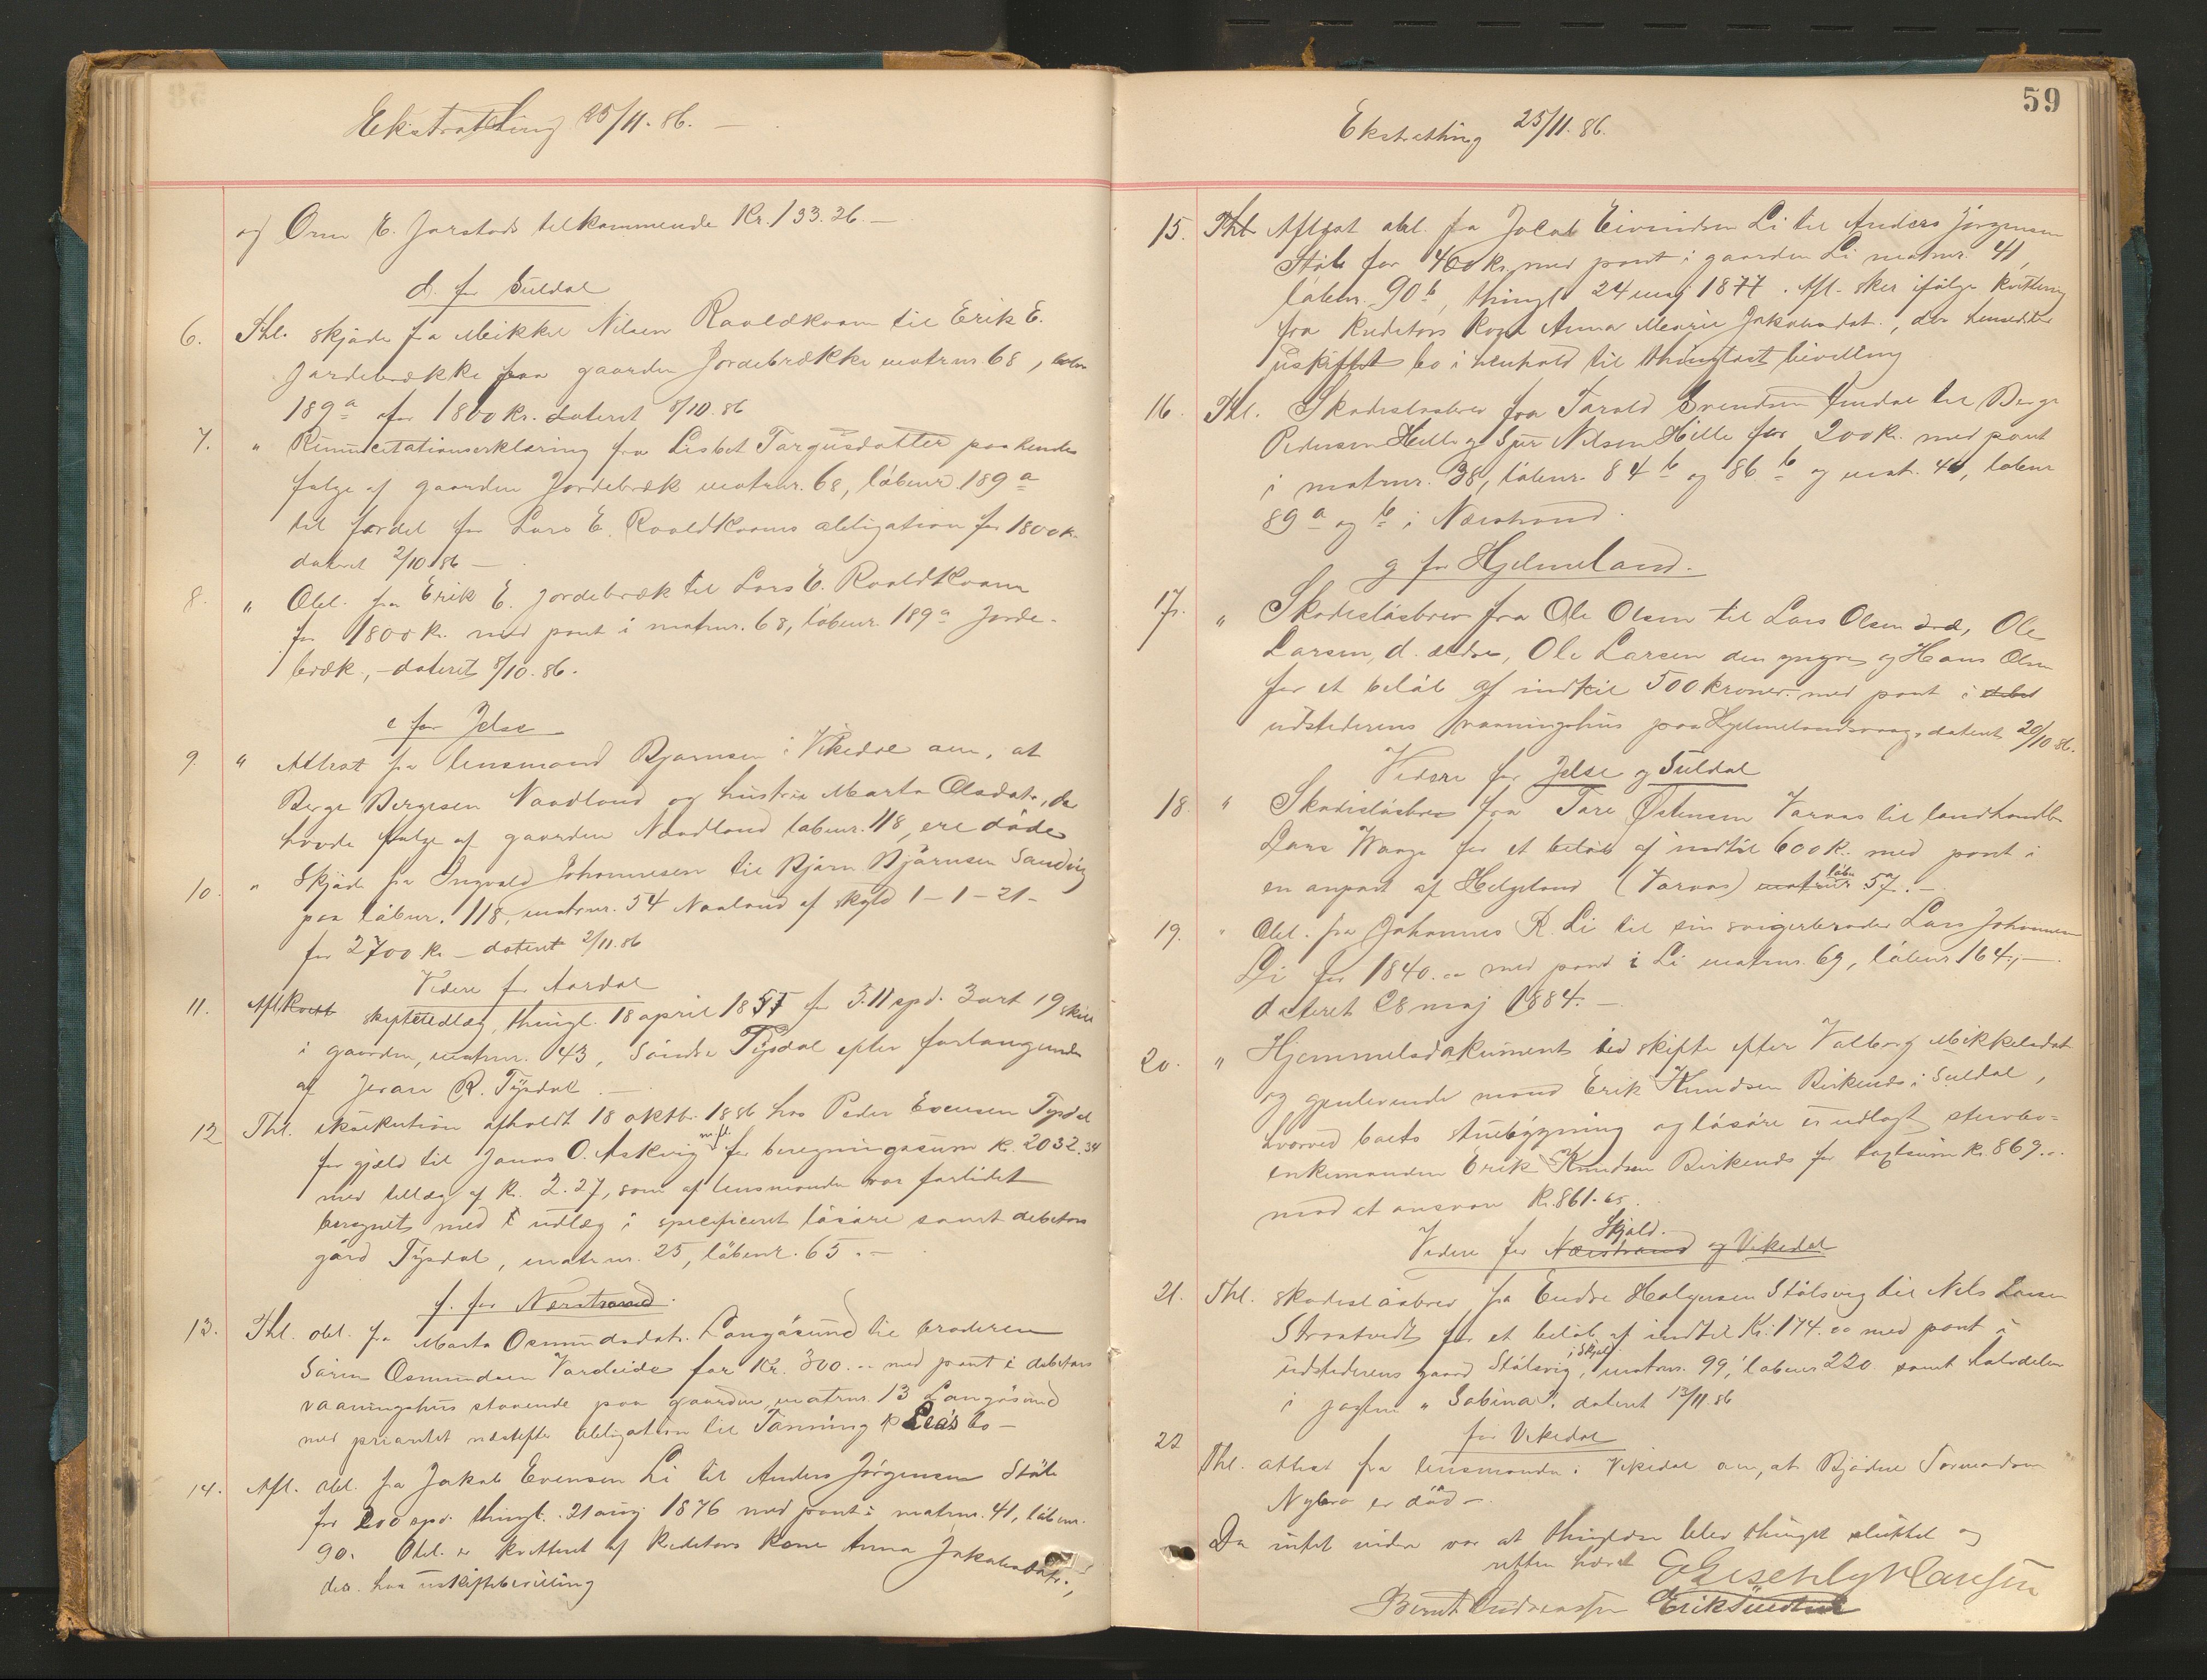 Ekstrathing 25/11. 86. —
og Orm E. Jarstads tilkommende Kr. 133.26. —
d. for Suldal
6. Thl. skjøde fra Mikkel Nilsen Roaldkvam til Erik E.
Jordebrække paa gaarden Jordebrække matrnr 68, løbnr
189a for 1800 kr. dateret 8/10. 86
7. " Renunciationserklæring fra Lisbet Targusdatter paa hendes
følge af gaarden Jordebræk matrnr. 68, løbenr. 189a
til fordel for Lars E. Roaldkvams obligation for 1800 k.
dateret 2/10 86 —
8. " Obl. fra Erik E. Jordebræk til Lars E. Roaldkvam
for 1800 kr. med pant i matrnr. 68, løbenr. 189a Jorde-
bræk, – dateret 8/10. 86.
e for Jelse
9. " Attest fra lensmand Bjørnsen i Vikedal om, at
Berge Bergesen Naadland og hustru Marta Olsdatr., der
havde følge af gaarden Naadland løbenr. 118, ere døde
10. " Skjøde fra Ingvald Johannesen til Bjørn Bjørnsen Sandvig
paa løbnr. 118, matrnr. 54 Naaland af skyld 1–1–21–
for 2700 kr – dateret 2/11.86
Videre for Aardal
11. Afl. Kvitt skifteudlæg, thingl. 18 april 1857 for 511 spd. 3 ort 19 skill
i gaarden, matrnr. 43, Søndre Tysdal efter forlangende
af Jeran R. Tysdal. —
12 Thl. eksekution afholdt 18 oktb. 1886 hos Peder Evensen Tysdal
for gjæld til Jonas O. Askvig m. fl. for beregningssum kr. 2032.34
med tillæg af kr. 2.27, som af lensmanden var forlidet
beregnet med t udlæg i specificeret løsøre samt debitors
gård Tysdal, matrnr. 25, løbenr. 65. —
f. for Nerstrand.
13. Thl. obl. fra Marta Osmundsdatr. Langåsund til broderen
Søren Osmundsen Vardeide for Kr. 300... med pant i debitors
vaaningshus staaende paa gaarden, matrnr. 13 Langåsund
med prioritet næstefter obligation til Tanning & Leas bo —
14. Afl. obl. fra Jakob Evensen Li til Anders Jørgensen Støle
for 200 spd. thingl. 21 aug 1876 med pant i matrnr. 41, løbenr.
90. Obl. er kvitteret af kreditors kone Anna Jakobsdatr.,
der har uskiftebevilling
59
Ekstrathing 25/11. 86.
15. Thl Aflyst obl. fra Jacob Eivindsen Li til Anders Jørgensen
Støle for 400 kr. med pant i gaarden Li matrnr. 41,
løbenr. 90b, thingl. 24 maj 1877. Afl. sker ifølge kvittering
fra kreditors kone Anna Marie Jakobsdat., der hensidder
i uskiftet bo i henhold til thinglæst bevilling
16. Thl. Skadesløsbrev fra Tarald Svendsen til Berge
Pedersen Hille og Sjur Nilsen Hille for 200 kr. med pant
i matrnr. 38, løbenr. 84b og 86b og matr. 40, løbenr
89a og b i Nærstrand.
g for Hjelmeland.
17. " Skadesløsbrev fra Ole Olsen til Lars Olsen, Ole
Larsen, d. ældre, Ole Larsen den yngre og Hans Olsen
for et beløb af indtil 500 kroner med pant i
udstederens vaaningshus paa Hjelmelandsvaag, dateret 20/10 86.
Videre for Jelse og Suldal
18. " Skadesløsbrev fra Tore Østensen Varvas til landhandler
Lars Waage for et beløb af indtil 600 k. med pant i
en anpart af Helgeland (Varvas) matrnr løbn 57. —
19. " Obl. fra Johannes R. Li til sin svigerbroder Lars Johannesen
Li for 1840.oo med pand i Li matrnr. 69, løbenr 164, —
dateret 28 maj 1884. —
20. " Hjemmelsdokument ved skifte efter Valborg Mikkelsdat
og gjenlevende mand Erik Knudsen Birkenes i Suldal,
hvorved boets stuebygning og løsøre er udlagt stervbo-
enkemanden Erik Knudsen Birkenes for taxtsum kr. 869...
mod et ansvar Kr. 861.65.
Videre for Nærstrand og Vikedal Skjold.
21. Thl. skadesløsbrev fra Endre Halgersen Stølsvig til Nils Larsen
Straatveit for et beløb af indtil Kr. 174.oo med pant i
udstederens gaard Stølsvig, i Skjold matrnr. 99, løbenr 220. samt halvdelen
i jagten "Sabina". dateret 13/11.86
for Vikedal
22 Thl. attest fra lensmanden i Vikedal om, at Bjødne Tormodsen
Nybro er død —.
Da intet videre var at thinglæse blev thinget sluttet og
retten hævet
Bernt Andreassen Erik Suldal